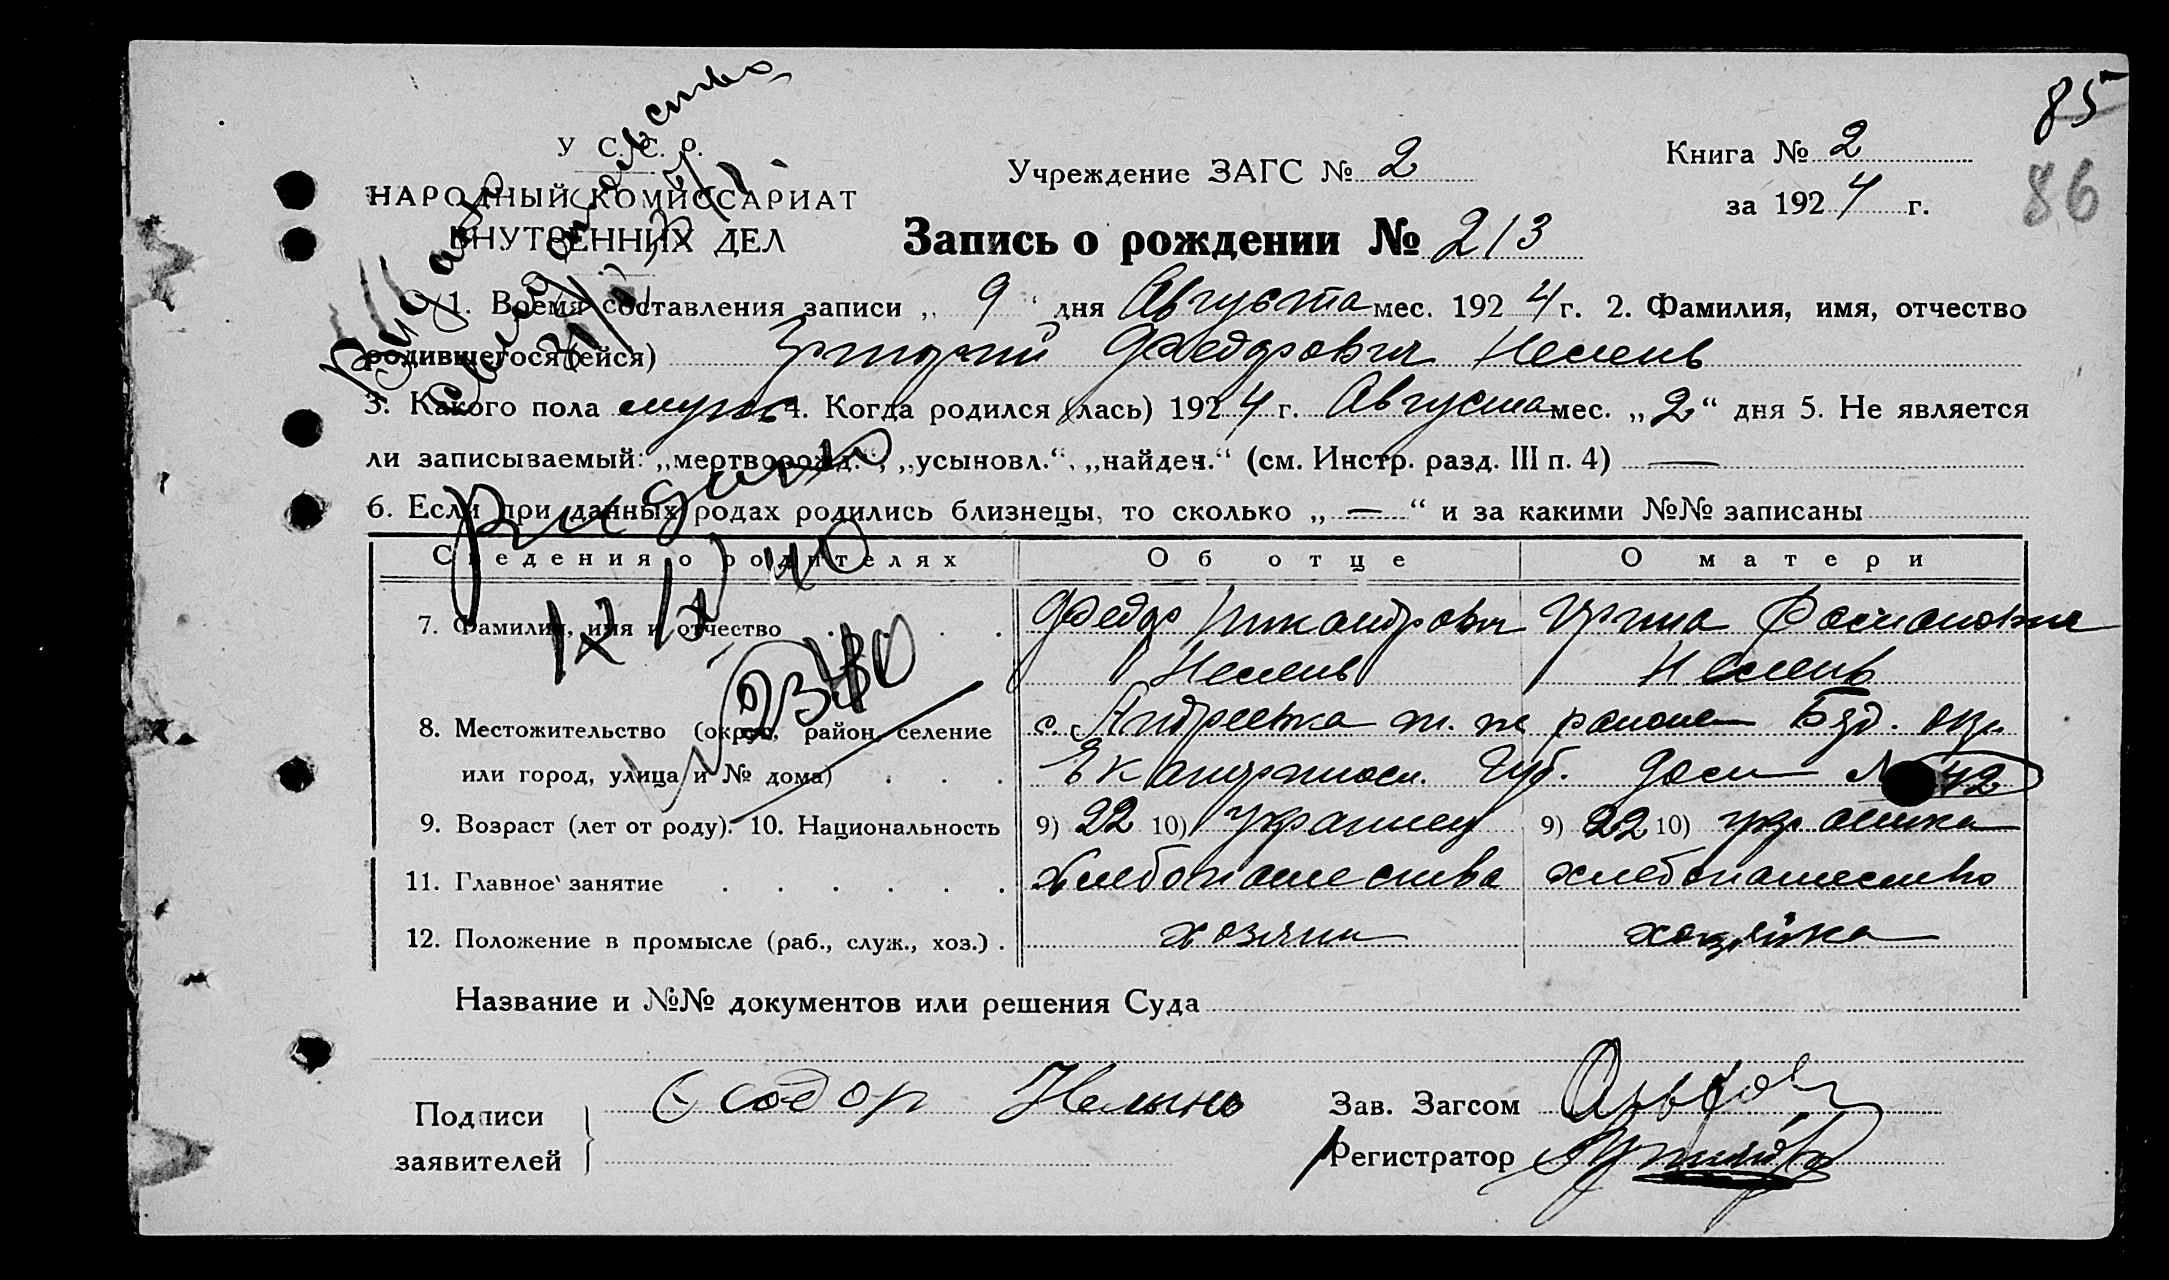 85
86
У С. С. Р.
НАРОДНЫЙ КОМИССАРИАТ
ВНУТРЕННИХ ДЕЛ
Учреждение ЗАГС № 2
Книга № 2
за 1924 г.
Запись о рождении № 213
1. Время составления записи „ 9 " дня Августа мес. 1924 г. 2. Фамилия, имя, отчество
родившегося (ейся) Григорий Федорович
3. Какого пола муж. 4. Когда родился (лась) 1924 г. Августа мес. „2" дня 5. Не является
ли записываемый: „мертворожд.", „усыновл.", „найден." (см. Инстр. разд. III п. 4) —
6. Если при данных родах родились близнецы, то сколько „ — " и за какими №№ записаны
Выдано
Свидетельство
Сведения о родителях Об отце О матери
7. Фамилия, имя и отчество Федор Никандрович
8. Местожительство (округ, район, селение с. Андреевка
или город, улица и № дома) Губ. дом № 42
9. Возраст (лет от роду). 10. Национальность 9) 22 10) украинец 9) 22 10) украинка
11. Главное занятие хлебопашество хлебопашество
12. Положение в промысле (раб., служ., хоз.) хозяин хозяйка
Название и №№ документов или решения Суда
Подписи
заявителей
Зав. Загсом
Регистратор